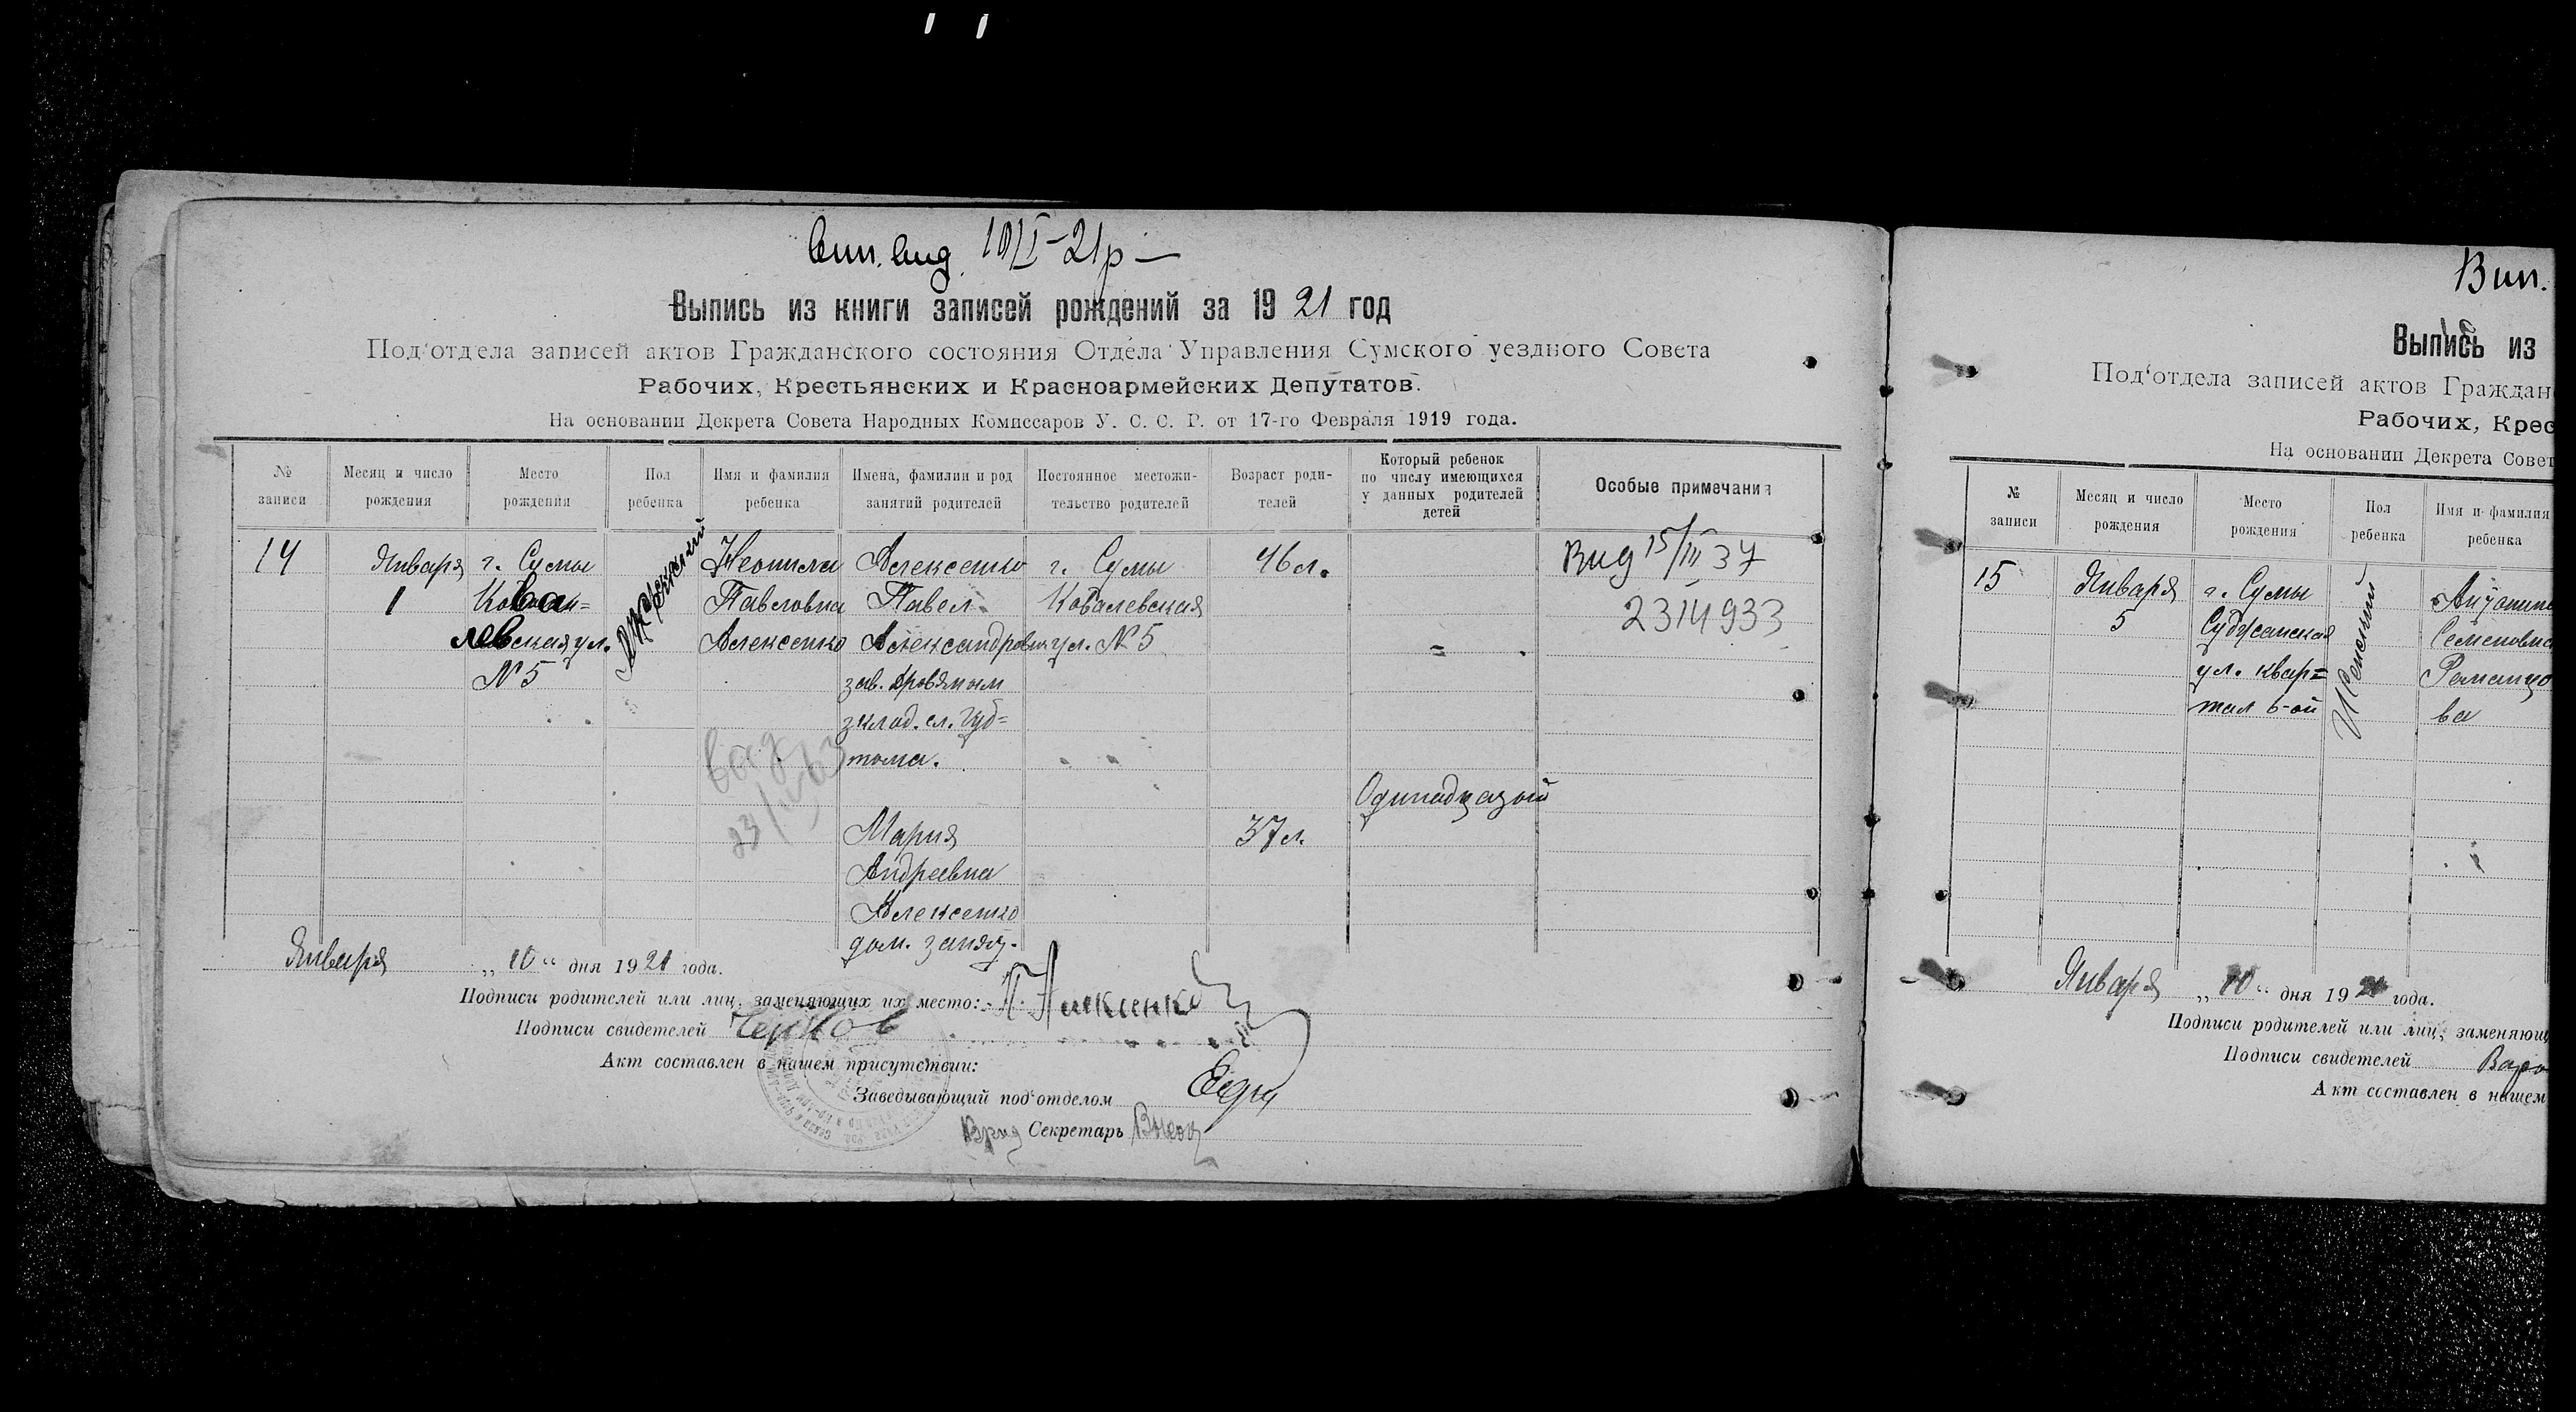 Вип. вид. 10/I-21р —
Выпись из книги записей рождений за 1921 год
Под'отдела записей актов Гражданского состояния Отдела Управления Сумского уездного Совета
Рабочих, Крестьянских и Красноармейских Депутатов.
На основании Декрета Совета Народных Комиссаров У. С. С. Р. от 17-го Февраля 1919 года.
№ записи
Месяц и число рождения
Место рождения
Пол ребенка
Имя и фамилия ребенка
Имена, фамилии и род занятий родителей
Постоянное местожительство родителей
Возраст родителей
Который ребенок по числу имеющихся у данных родителей детей
Особые примечания
14
Января
1
г. Сумы
левская ул.
№ 5
Женский
Неонила
Павловна
Алексенко
Алексенко
Павел
Александров
зав. дровяным
склад. ст. Губ=
тома.
Мария
Андреевна
Алексенко
дом. занят.
г. Сумы
Ковалевская
ул. № 5
46 л.
37 л.
Одинадцатый
Вид 15/III 37
2314933
Января „10“ дня 1921 года.
Подписи родителей или лиц, заменяющих их место:
Подписи свидетелей
Акт составлен в нашем присутствии:
Заведывающий под'отделом
Врид Секретарь
Вип.
Выпись из
Под'отдела записей актов Граждан
Рабочих, Крес
На основании Декрета Совет
№ записи
Месяц и число рождения
Место рождения
Пол ребенка
Имя и фамилия ребенка
15
Января
5
г. Сумы
Суджанская
ул. квар=
тал 6-ой
Женский
Антонина
Семеновна
Ва
Января „10“ дня 1921 года.
Подписи родителей или лиц, заменяющ
Подписи свидетелей
Акт составлен в нашем